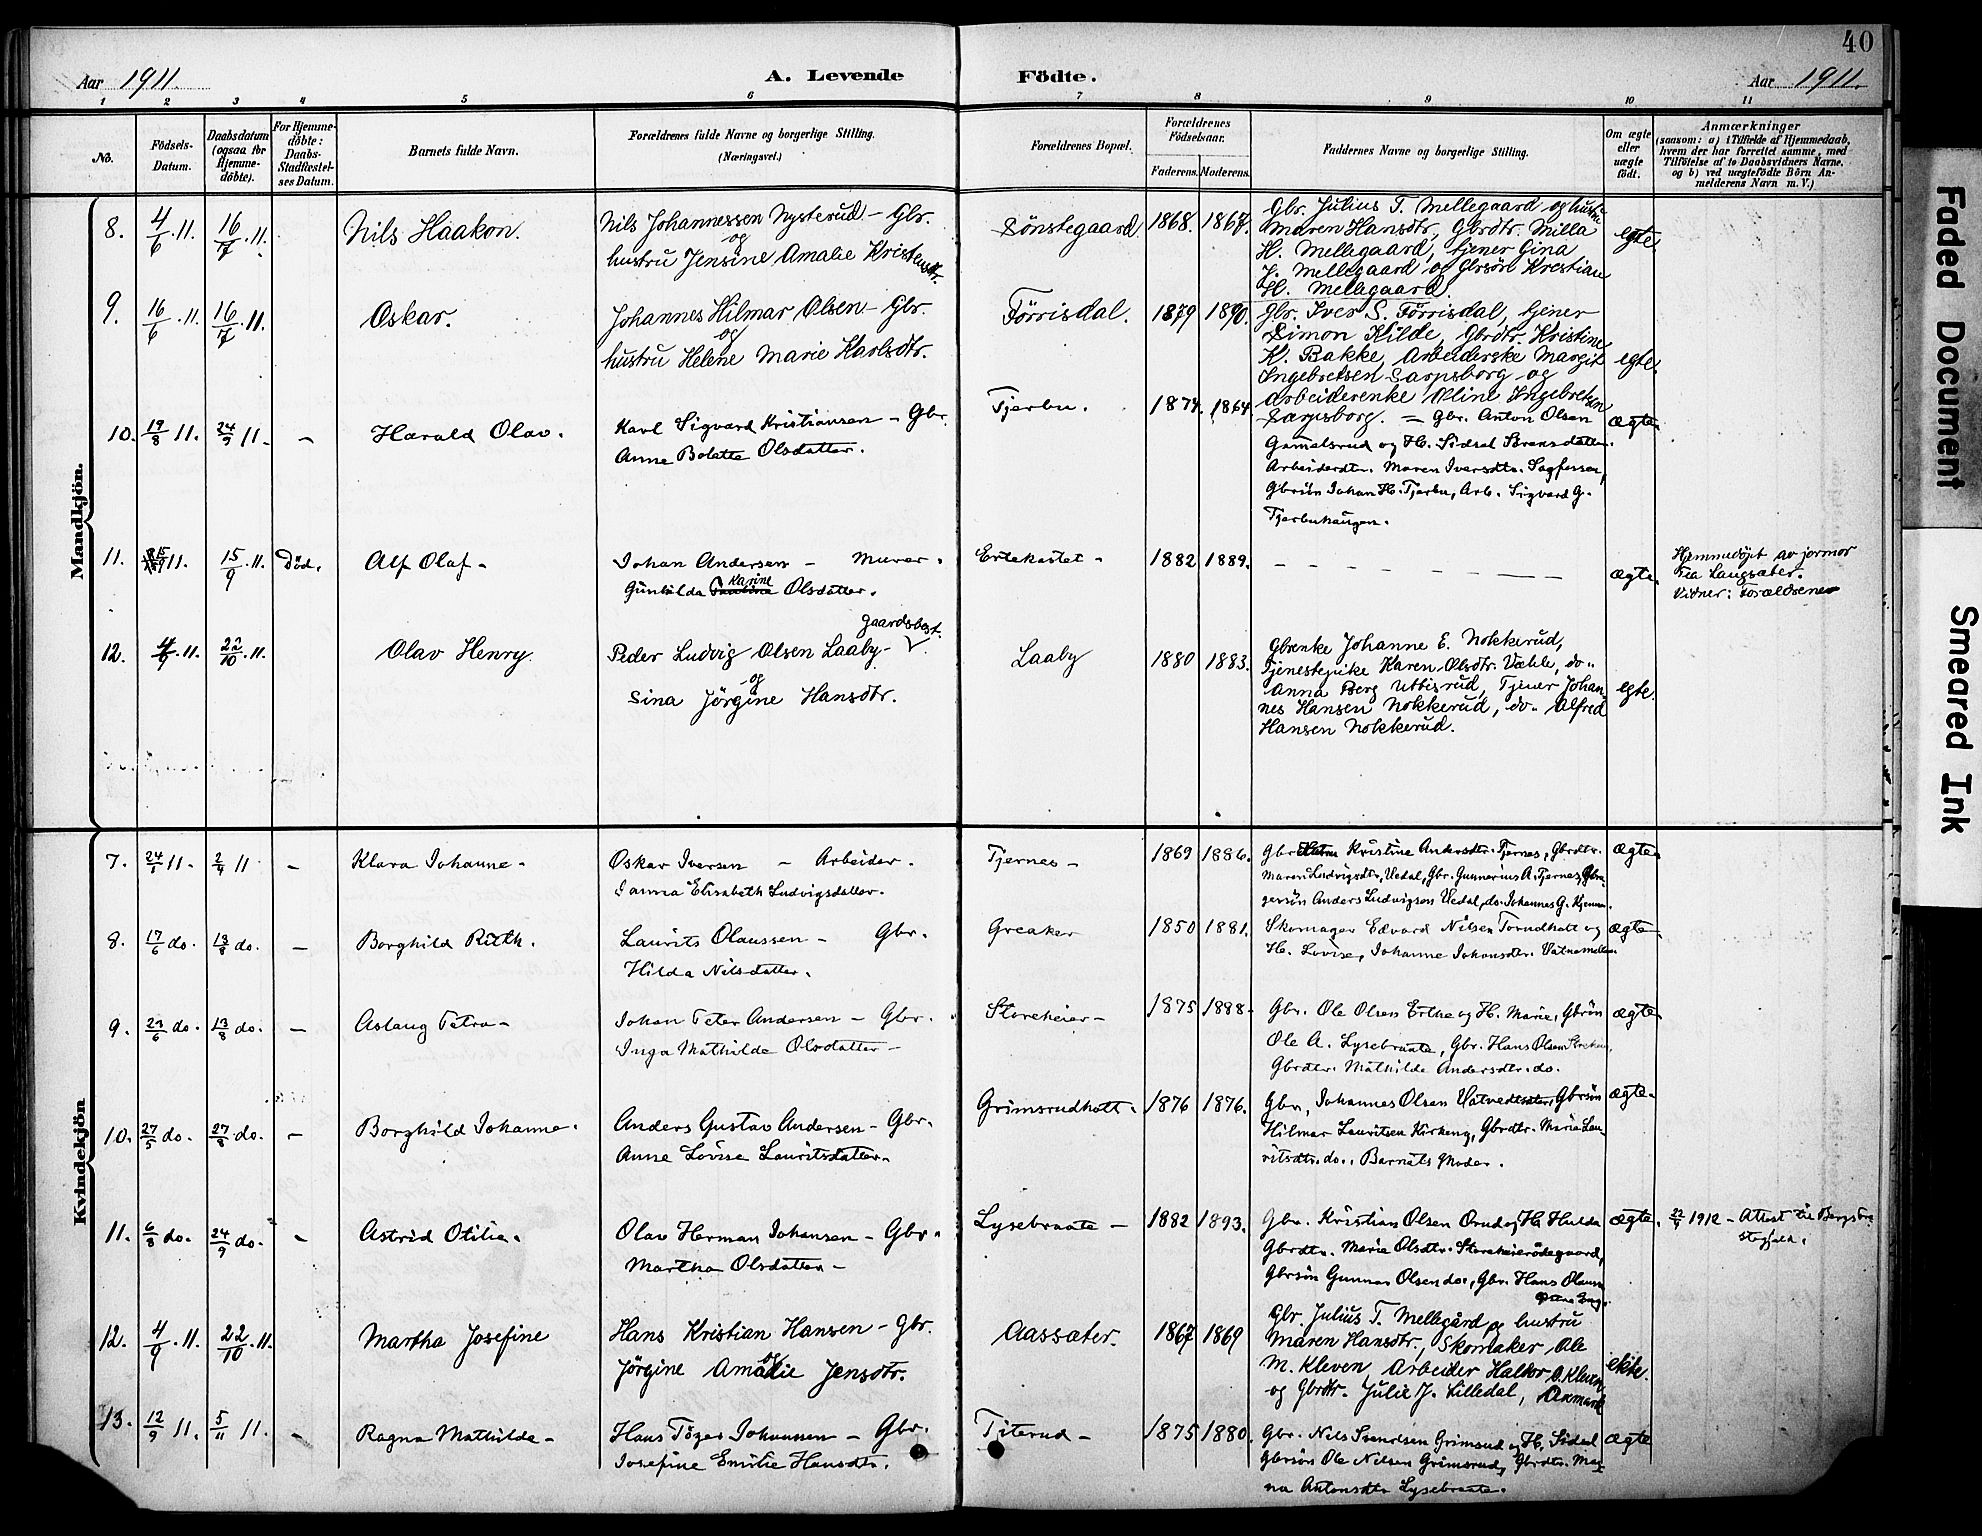 40
Aar 1911.
A. Levende Födte.
Aar 1911.
1 2 3 4 5 6 7 8 9 10 11
No.
Födsels-Datum.
Daabsdatum (ogsaa for Hjemme-döbte).
For Hjemme-döbte: Daabs-Stadfæstel-ses Datum.
Barnets fulde Navn.
Forældrenes fulde Navne og borgerlige Stilling.
(Næringsvei.)
Forældrenes Bopæl.
Forældrenes Födselsaar.
Faderens. Moderens.
Faddernes Navne og borgerlige Stilling.
Om ægte eller uægte födt.
Anmærkninger
(saasom: a) i Tilfælde af Hjemmedaab,
hvem der har forrettet samme, med
Tilföielse af to Daabsvidners Navne,
og b) ved uægtefödte Börn An-
melderens Navn m. V.)
Mandkjön.
8. 4/6 11. 16/7 11. Nils Haakon. Nils Johannessen Nysterud - Gbr.
og
hustru Jensine Amalie Kristensdtr.
Sönstegaard. 1868. 1867.
Gbr. Julius T. Mellegaard og hustru
Maren Hansdtr, Gbrdtr. Milla
H. Mellegaard, tjener Gina
J. Mellegaard og Gbrsön Krestian
H. Mellegaard.
egte.
9. 16/6 11. 16/7 11. Oskar. Johannes Hilmar Olsen - Gbr.
og
hustru Helene Marie Karlsdtr.
Förrisdal. 1879 1890.
Gbr. Iver S. Förrisdal, tjener
Simon Kilde, Gbrdtr. Kristine
K. Bakke, Arbeiderske Margit
Ingebretsen Sarpsborg og
Arbeiderenke Oline Ingebretsen
Sarpsborg.
egte.
10. 19/8 11. 24/9 11. - Harald Olav. Karl Sigvard Kristiansen - Gbr.
Anne Bolette Olsdatter.
Tjerbu. 1874. 1864
= Gbr. Anton Olsen
Gamelsrud og H. Sidsel Sörensdatter.
Arbeiderdtr. Maren Iversdtr. Sagfossen,
Gbrsön Johan H. Tjerbu, Arb. Sigvard G.
Tjerbuhaugen.
ægte.
11. 11. 15/9 11. Död. Alf Olaf - Johan Andersen - Murer.
Karine
Gunhilda Olsdatter.
Ertekastet - 1882 1889. - - - - - - -
ægte.
Hjemmedöpt av jormor
Tea Langsæter.
Vidner: Forældrene
12. 4/9 11. 22/10 11. Olav Henry.
gaardsbest.
Peder Ludvig Olsen Laaby -
og
Sina Jörgine Hansdtr.
Laaby 1880 1883.
Gbrenke Johanne E. Nokkerud,
Tjenestepike Karen Olsdtr. Væhle, do..
Anna Berg Ubbisrud, Tjener Johan-
nes Hansen Nokkerud, do.. Alfred
Hansen Nokkerud.
egte.
Kvindekjön
7. 11. 11 - Klara Johanne - Oskar Iversen - Arbeider.
Janna Elisabeth Ludvigsdatter.
Tjernes - 1869 1886.
Gbr Kristine Andersdtr. Tjernes, Gbrdtr.
Maren Ludvigsdtr, Vedal, Gbr. Gunnerius A. Tjernes,
Anders Ludvigson Vedal, do. Johannes G.
ægte.
8. 17/6 do. 13/8 do. - Borghild Ruth. Laurits Olaussen - Gbr.
Hilda Nilsdatter.
Greaker 1850 1881.
Skomager Edvard Nilsen og
H. Lovise, Johanne Johansdtr.
ægte.
9. do. 13/8 do. - Aslaug Petra - Johan Peter Andersen - Gbr.
Inga Mathilde Olsdatter -
Storeheier - 1875 1888.
Gbr. Ole Olsen Erthe og H. Marie, Gbrsön
Ole A. Lysebraate, Gbr. Hans Olsen
Gbrdtr. Mathilde Andersdtr. do.
ægte.
10. 27/5 do. 27/8 do. - Borghild Johanne. Anders Gustav Andersen - Gbr.
Anne Lovise Lauritsdatter.
Grimsrudholt. 1876 1876.
Gbr. Johannes Olsen Gbrsön
Hilmar Lauritsen Kirkeng, Gbrdtr. Marie Lau-
ritsdtr. do.. Barnets Moder.
ægte.
11. 6/8 do. 24/9 do. - Astrid Otilie. Olav Herman Johansen - Gbr.
Martha Olsdatter -
Lysebraate - 1882 1893.
Gbr. Kristian Olsen Orud og H. Hulda
Gbrdtr. Marie Olsdtr. Storeheierödegaard,
Gbrsön Gunnar Olsen do., Gbr. Hans Olausen
ægte.
1912 - Attest til
12. 4/9 11. 22/10 11. Martha Josefine Hans Kristian Hansen - Gbr.
og
Jörgine Amalie Jensdtr.
Aassæter. 1867 1869
Gbr. Julius T. Mellegård og hustru
Maren Hansdtr., Skomaker Ole
M. Kleven, Arbeider Halvor O. Kleven
og Gbrdtr. Julie J. Lilledal, Aremark
ekte.
13. 12/9 11. 5/11 11. - Ragna Mathilde - Hans Töger Johannsen - Gbr.
Josefine Emilie Hansdtr.
Titerud - 1875 1880.
Gbr. Nils Svendsen Grimsrud og H. Sidsel
Gbrsön Ole Nilsen Grimsrud, Gbrdtr. Mag-
na Antonsdtr Lysebraate.
ægte
Faded Document
Smeared Ink